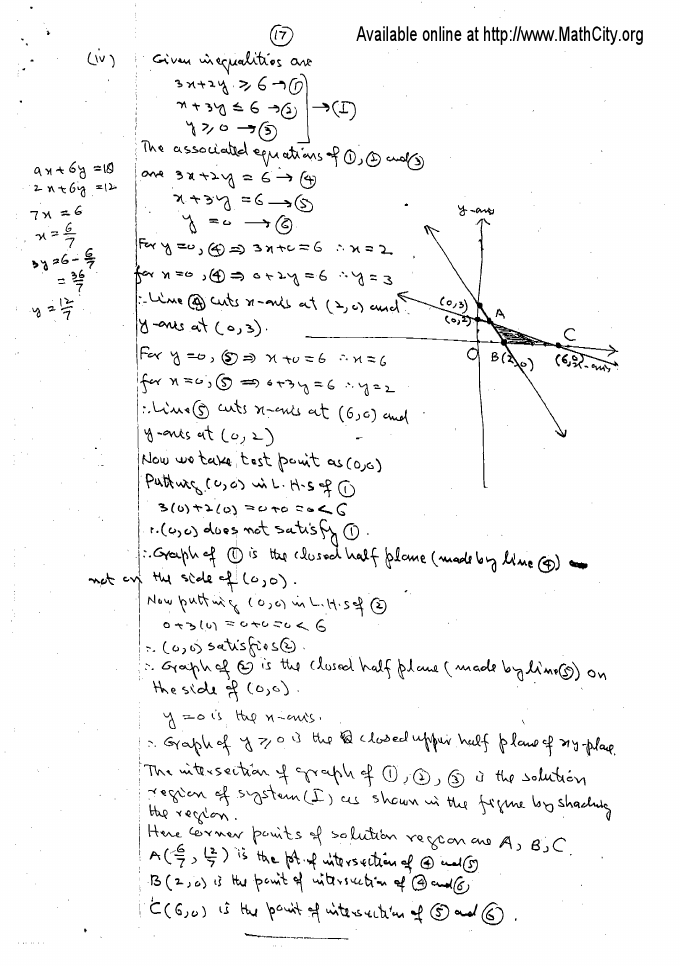 17
Available online at http://www.MathCity.org
(iv) Given inequalities are
3x+2y ≥ 6 → ①
x+3y ≤ 6 → ②
y ≥ 0 → ③
→ (I)
The associated equations of ①, ② and ③
are 3x+2y = 6 → ④
x+3y = 6 → ⑤
y = 0 → ⑥
For y=0, ④ ⇒ 3x+0=6 ∴ x=2
for x=0, ④ ⇒ 0+2y=6 ∴ y=3
∴ Line ④ cuts x-axis at (2,0) and
y-axis at (0,3).
For y=0, ⑤ ⇒ x+0=6 ∴ x=6
for x=0, ⑤ ⇒ 0+3y=6 ∴ y=2
∴ Line ⑤ cuts x-axis at (6,0) and
y-axis at (0,2)
Now we take test point as (0,0)
Putting (0,0) in L.H.S of ①
3(0)+2(0) = 0+0 = 0 < 6
∴ (0,0) does not satisfy ①.
∴ Graph of ① is the closed half plane (made by line ④)
not on the side of (0,0).
Now putting (0,0) in L.H.S of ②
0+3(0) = 0+0 = 0 < 6
∴ (0,0) satisfies ②.
∴ Graph of ② is the closed half plane (made by line ⑤) on
the side of (0,0).
y = 0 is the x-axis.
∴ Graph of y ≥ 0 is the closed upper half plane of xy-plane.
The intersection of graph of ①, ②, ③ is the solution
region of system (I) as shown in the figure by shading
the region.
Here corner points of solution region are A, B, C.
A(6/7, 12/7) is the pt. of intersection of ④ and ⑤
B(2,0) is the point of intersection of ④ and ⑥
C(6,0) is the point of intersection of ⑤ and ⑥.
9x+6y=18
2x+6y=12
7x=6
x=6/7
3y=6-6/7
=36/7
y=12/7
y-axis
(0,3)
A
(0,2)
C
O
B(2,0)
(6,0)
x-axis